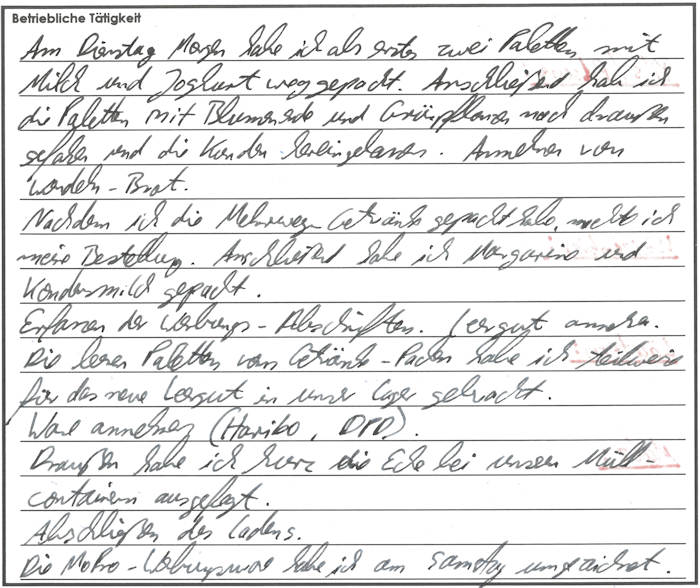 Betriebliche Tätigkeit
Am Dienstag Morgen habe ich als erstes zwei Paletten mit
Milch und Joghurt weggepackt. Anschließend hab ich
die Paletten mit Blumenerde und Grünpflanzen nach draußen
gefahren und die Kunden hereingelassen. Annehmen von
Wendeln-Brot.
Nachdem ich die Mehrweg-Getränke gepackt habe, machte ich
meine Bestellung. Anschließend habe ich Margarine und
Kondensmilch gepackt.
Erfassen der Werbungs-Abschriften. Leergut annehmen.
Die leeren Paletten vom Getränke-Packen habe ich teilweise
für das neue Leergut in unser Lager gebracht.
Ware annehmen (Haribo, DPD).
Draußen habe ich kurz die Ecke bei unseren Müll-
containern ausgefegt.
Abschließen des Ladens.
Die MoPro-Werbungsware habe ich am Samstag umgezeichnet.